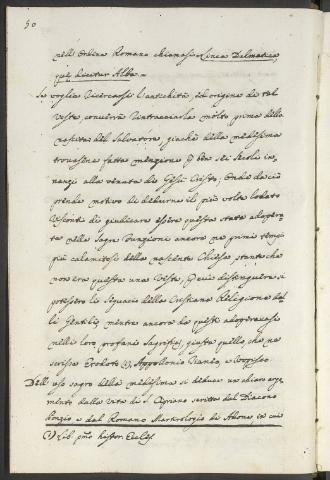 50
nell' Ordine Romano chiamasi Linea Dalmatica,
quę dicitur Alba =
Se voglia ricercarsi l'antichità, ed origine di tal
veste, converrà rintracciarla molto prima della
nascita del Salvatore, giache della medesima
trovasene fatta menzione
nanzi alla venuta di Gesù Cristo; Onde da ciò
prende motivo di dedurne il più volte lodato
Visconti di giudicare essere questa stata adopera
ta nelle Sagre Funzioni ancora ne primi tempi
più calamitosi della nascente Chiesa, stante che
non era questa una Veste, che distinguere si
potessero li Seguaci della Cristiana Religione da
li Gentili, mentre ancora da questi adoperavasi
nelli loro profani Sagrifizj, giusta quello, che ne
scrisse Erodoto (1), Appollonio Tianeo, e
Dell' uso sagro della medesima si deduce un chiaro argo
mento dalla vita di S. Cipriano scritta dal Diacono
Ponzio e dal Romano Martirologio di Adone in cui
(1) Lib. pmo histor. Eccles.